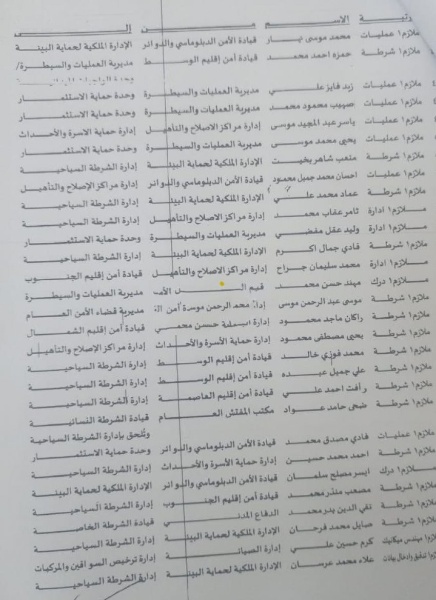 رتبة الاسم من إلى
ملازم١ عمليات محمد موسى نهار قيادة الأمن الدبلوماسي والدوائر الإدارة الملكية لحماية البيئة
ملازم١ شرطة حمزه احمد محمد قيادة أمن إقليم الوسط مديرية العمليات والسيطرة/
ملازم١ عمليات زيد فايز علي مديرية العمليات والسيطرة وحدة حماية الاستثمار
ملازم١ عمليات صهيب محمود محمد مديرية العمليات والسيطرة وحدة حماية الاستثمار
ملازم١ عمليات ياسر عبد المجيد موسى إدارة مراكز الاصلاح والتأهيل إدارة حماية الاسرة والأحداث
ملازم١ عمليات يحيى محمد موسى مديرية العمليات والسيطرة وحدة حماية الاستثمار
ملازم١ شرطة متعب شاهر بخيت الإدارة الملكية لحماية البيئة إدارة الشرطة السياحية
ملازم١ عمليات احسان محمد جميل محمود قيادة الأمن الدبلوماسي والدوائر إدارة مراكز الإصلاح والتأهيل
ملازم١ شرطة عماد محمد علي الإدارة الملكية لحماية البيئة إدارة الشرطة السياحية
ملازم١ ادارة ثامر عقاب محمد إدارة مراكز الاصلاح والتأهيل إدارة الشرطة السياحية
ملازم١ ادارة وليد عقل مفضي مديرية العمليات والسيطرة وحدة حماية الاستثمار
ملازم١ شرطة فادي جمال اكرم الإدارة الملكية لحماية البيئة إدارة الشرطة السياحية
ملازم١ ادارة محمد سليمان جراح إدارة مراكز الاصلاح والتأهيل قيادة أمن إقليم الجنوب
ملازم١ درك مهند حسن محمد مديرية العمليات والسيطرة
ملازم١ شرطة موسى عبد الرحمن موسى مديرية قضاء الأمن العام
ملازم١ شرطة راكان ماجد محمود قيادة أمن إقليم الشمال
ملازم١ شرطة يحيى مصطفى محمود إدارة حماية الأسرة والأحداث إدارة مراكز الإصلاح والتأهيل
ملازم١ شرطة محمد فوزي خالد قيادة أمن إقليم الوسط إدارة الشرطة السياحية
ملازم١ شرطة علي جميل عبده قيادة أمن إقليم الوسط إدارة الشرطة السياحية
ملازم١ شرطة رافت احمد علي قيادة أمن إقليم العاصمة إدارة الشرطة السياحية
ملازم١ شرطة ضحى حامد عواد مكتب المفتش العام قيادة الشرطة النسائية
وتلحق بإدارة الشرطة السياحية
ملازم١ عمليات فادي مصدق محمد قيادة الأمن الدبلوماسي والدوائر وحدة حماية الاستثمار
ملازم١ شرطة احمد محمد حسين إدارة حماية الأسرة والأحداث إدارة الشرطة السياحية
ملازم١ درك ايسر مصلح سلمان قيادة الأمن الدبلوماسي والدوائر الإدارة الملكية لحماية البيئة
ملازم١ شرطة مصعب منذر محمد قيادة أمن إقليم الجنوب إدارة الشرطة السياحية
ملازم١ شرطة تقي الدين بدر محمد الدفاع المدني قيادة الشرطة الخاصة
ملازم١ شرطة صايل محمد فرحان الإدارة الملكية لحماية البيئة إدارة الشرطة السياحية
ملازم١ مهندس ميكانيك كرم حسين علي إدارة الصيانة إدارة ترخيص السواقين والمركبات
ملازم١ تدقيق وادخال بيانات علاء محمد عرسان الإدارة الملكية لحماية البيئة إدارة الشرطة السياحية